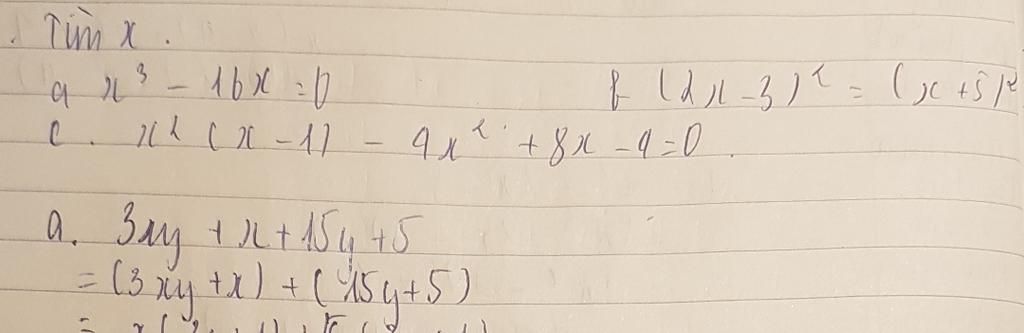 . Tìm x .
a x³ - 16x = 0 b (2x - 3)² = (x + 5)²
c . x² (x - 1) - 4x² + 8x - 4 = 0 .
a. 3xy + x + 15y + 5
= (3xy + x) + (15y + 5)